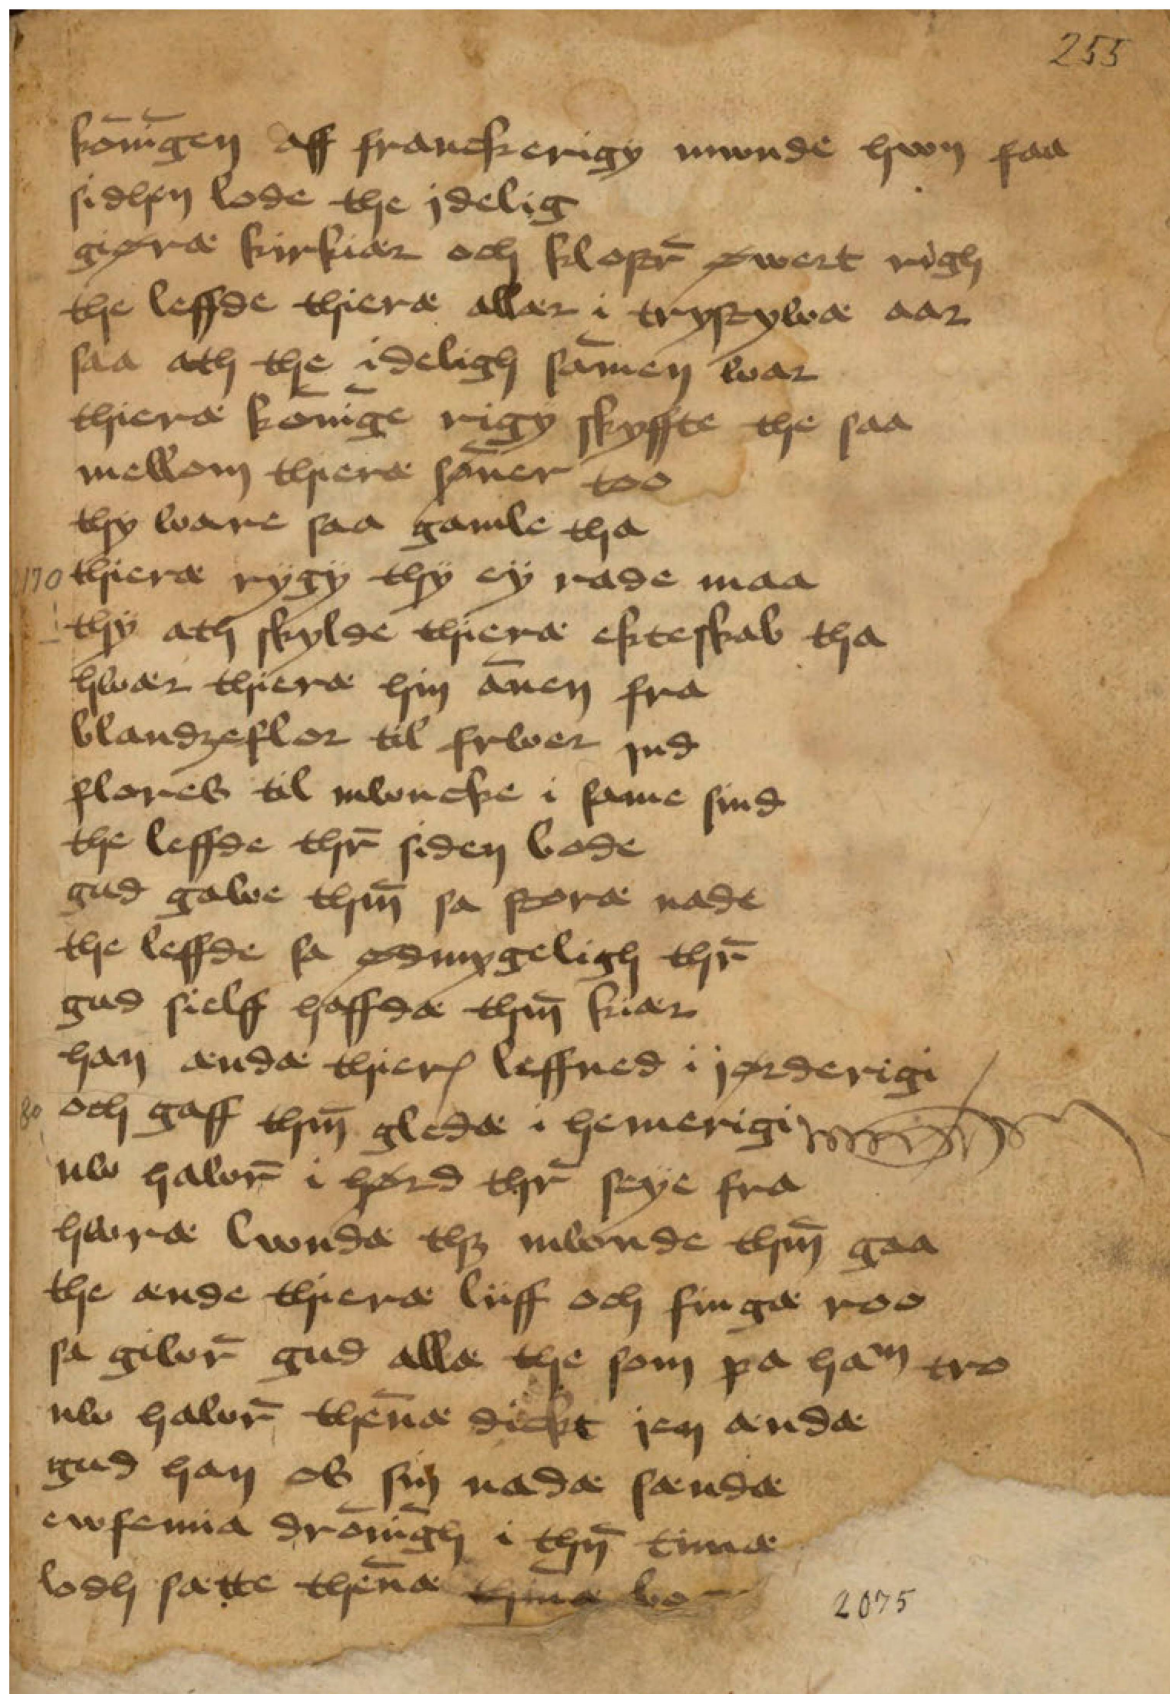 255
kōnīgen aff franckerigy mwnde hwn faa
sidhen lode the jdelig
giøræ kirkiær och klostr̄ øwert righ
the leffde thieræ allær i trystywæ aar
saa ath the ideligh sāmen war
thieræ kōnīge rigy skyffte the saa
mellom thieræ sø̄ner too
thy ware saa gamle tha
170 thieræ rygy thy ey rade maa
thy ath skylde thieræ ekteskab tha
hwær thieræ hin ānen fra
blandzeflor til frwer ind
flores til mwncke i same sind
the leffde thr̄ siden bode
gud gawe thm̄ sa storæ nade
the leffde sa ødmygeligh thr̄
gud sielff haffdæ thm̄ kiær
han ændæ thier leffned i jørderigi
80 och gaff thm̄ gledæ i hemerigi
nw hawr̄ i hørd thr̄ seye fra
hwræ lwndæ thz mwnde thm̄ gaa
the ænde thieræ liiff och fingæ roo
sa giwr̄ gud allæ the som pa ham tro
nw hawr̄ thēnæ dickt jen ændæ
gud han os sin nadæ sændæ
ewfemia drōnīgh i thn̄ timæ
lodh sætte thēnæ
2075